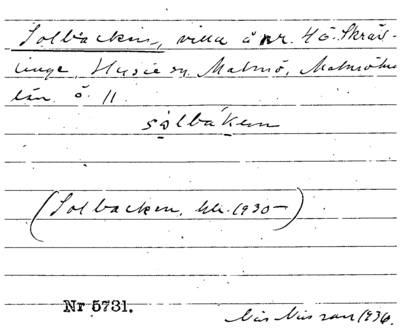 Solbacken, villa å nr. 46 Skräv-
linge, Husie sn, Malmö, Malmöhus
län. ö. 11.
sɷlbákеn
(Solbacken, bli. 1930 –)
Nr 5731.
Nils Nilsson 1936.